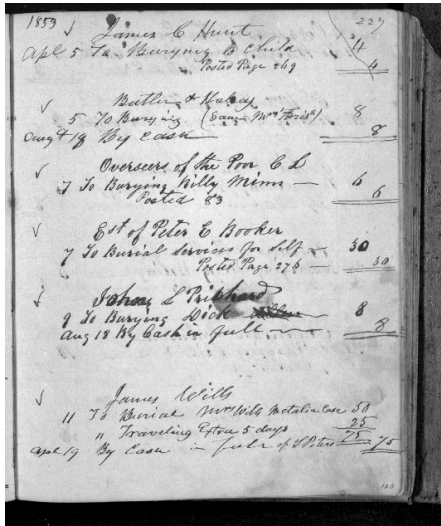 1853 James C Hunt 227
Apl 5 To Burying C Child 4
Posted Page 269 4
Butler & Halsey
5 To Burying (Saml Mrs ) 8
Augt 18 By Cash 8
Overseers of the Poor C L
7 To Burying Billy Mims 6
Posted 83 6
Est of Peter C Booker
7 To Burial Services for Self 30
Posted Page 276 30
John L Prichard
9 To Burying Dick 8
Aug 18 By Cash in full 8
James Wills
11 To Burial Mrs Wills Metalic Case 50
" Traveling Extra 5 days 25
75
Apl 19 By Cash in full of S Peters 75